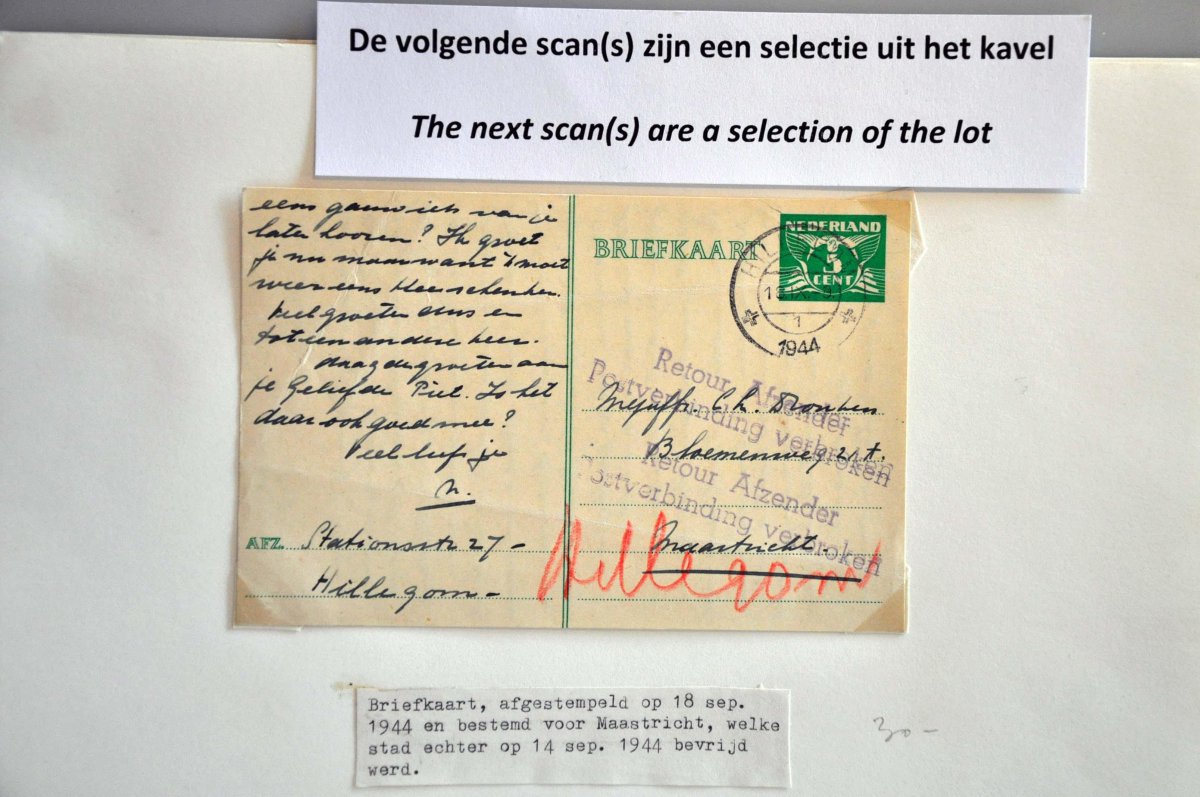 De volgende scan(s) zijn een selectie uit het kavel
The next scan(s) are a selection of the lot
eens gauw iets van je
laten hooren? Ik groet
je nu maar want 'k moet
weer eens thee schenken.
Veel groeten dus en
tot een andere keer.
draag de groeten aan
je Geliefde Piet. Is het
daar ook goed mee?
Veel liefs je
N.
AFZ. Stationsstr 27 -
Hillegom -
BRIEFKAART
NEDERLAND
5
CENT
HIL
1
1944
Retour Afzender
Postverbinding verbroken
Mejuffr. Ch.
Bloemenweg 21 A.
Retour Afzender
Postverbinding verbroken
Maastricht.
Hillegom
Briefkaart, afgestempeld op 18 sep.
1944 en bestemd voor Maastricht, welke
stad echter op 14 sep. 1944 bevrijd
werd.
30 -